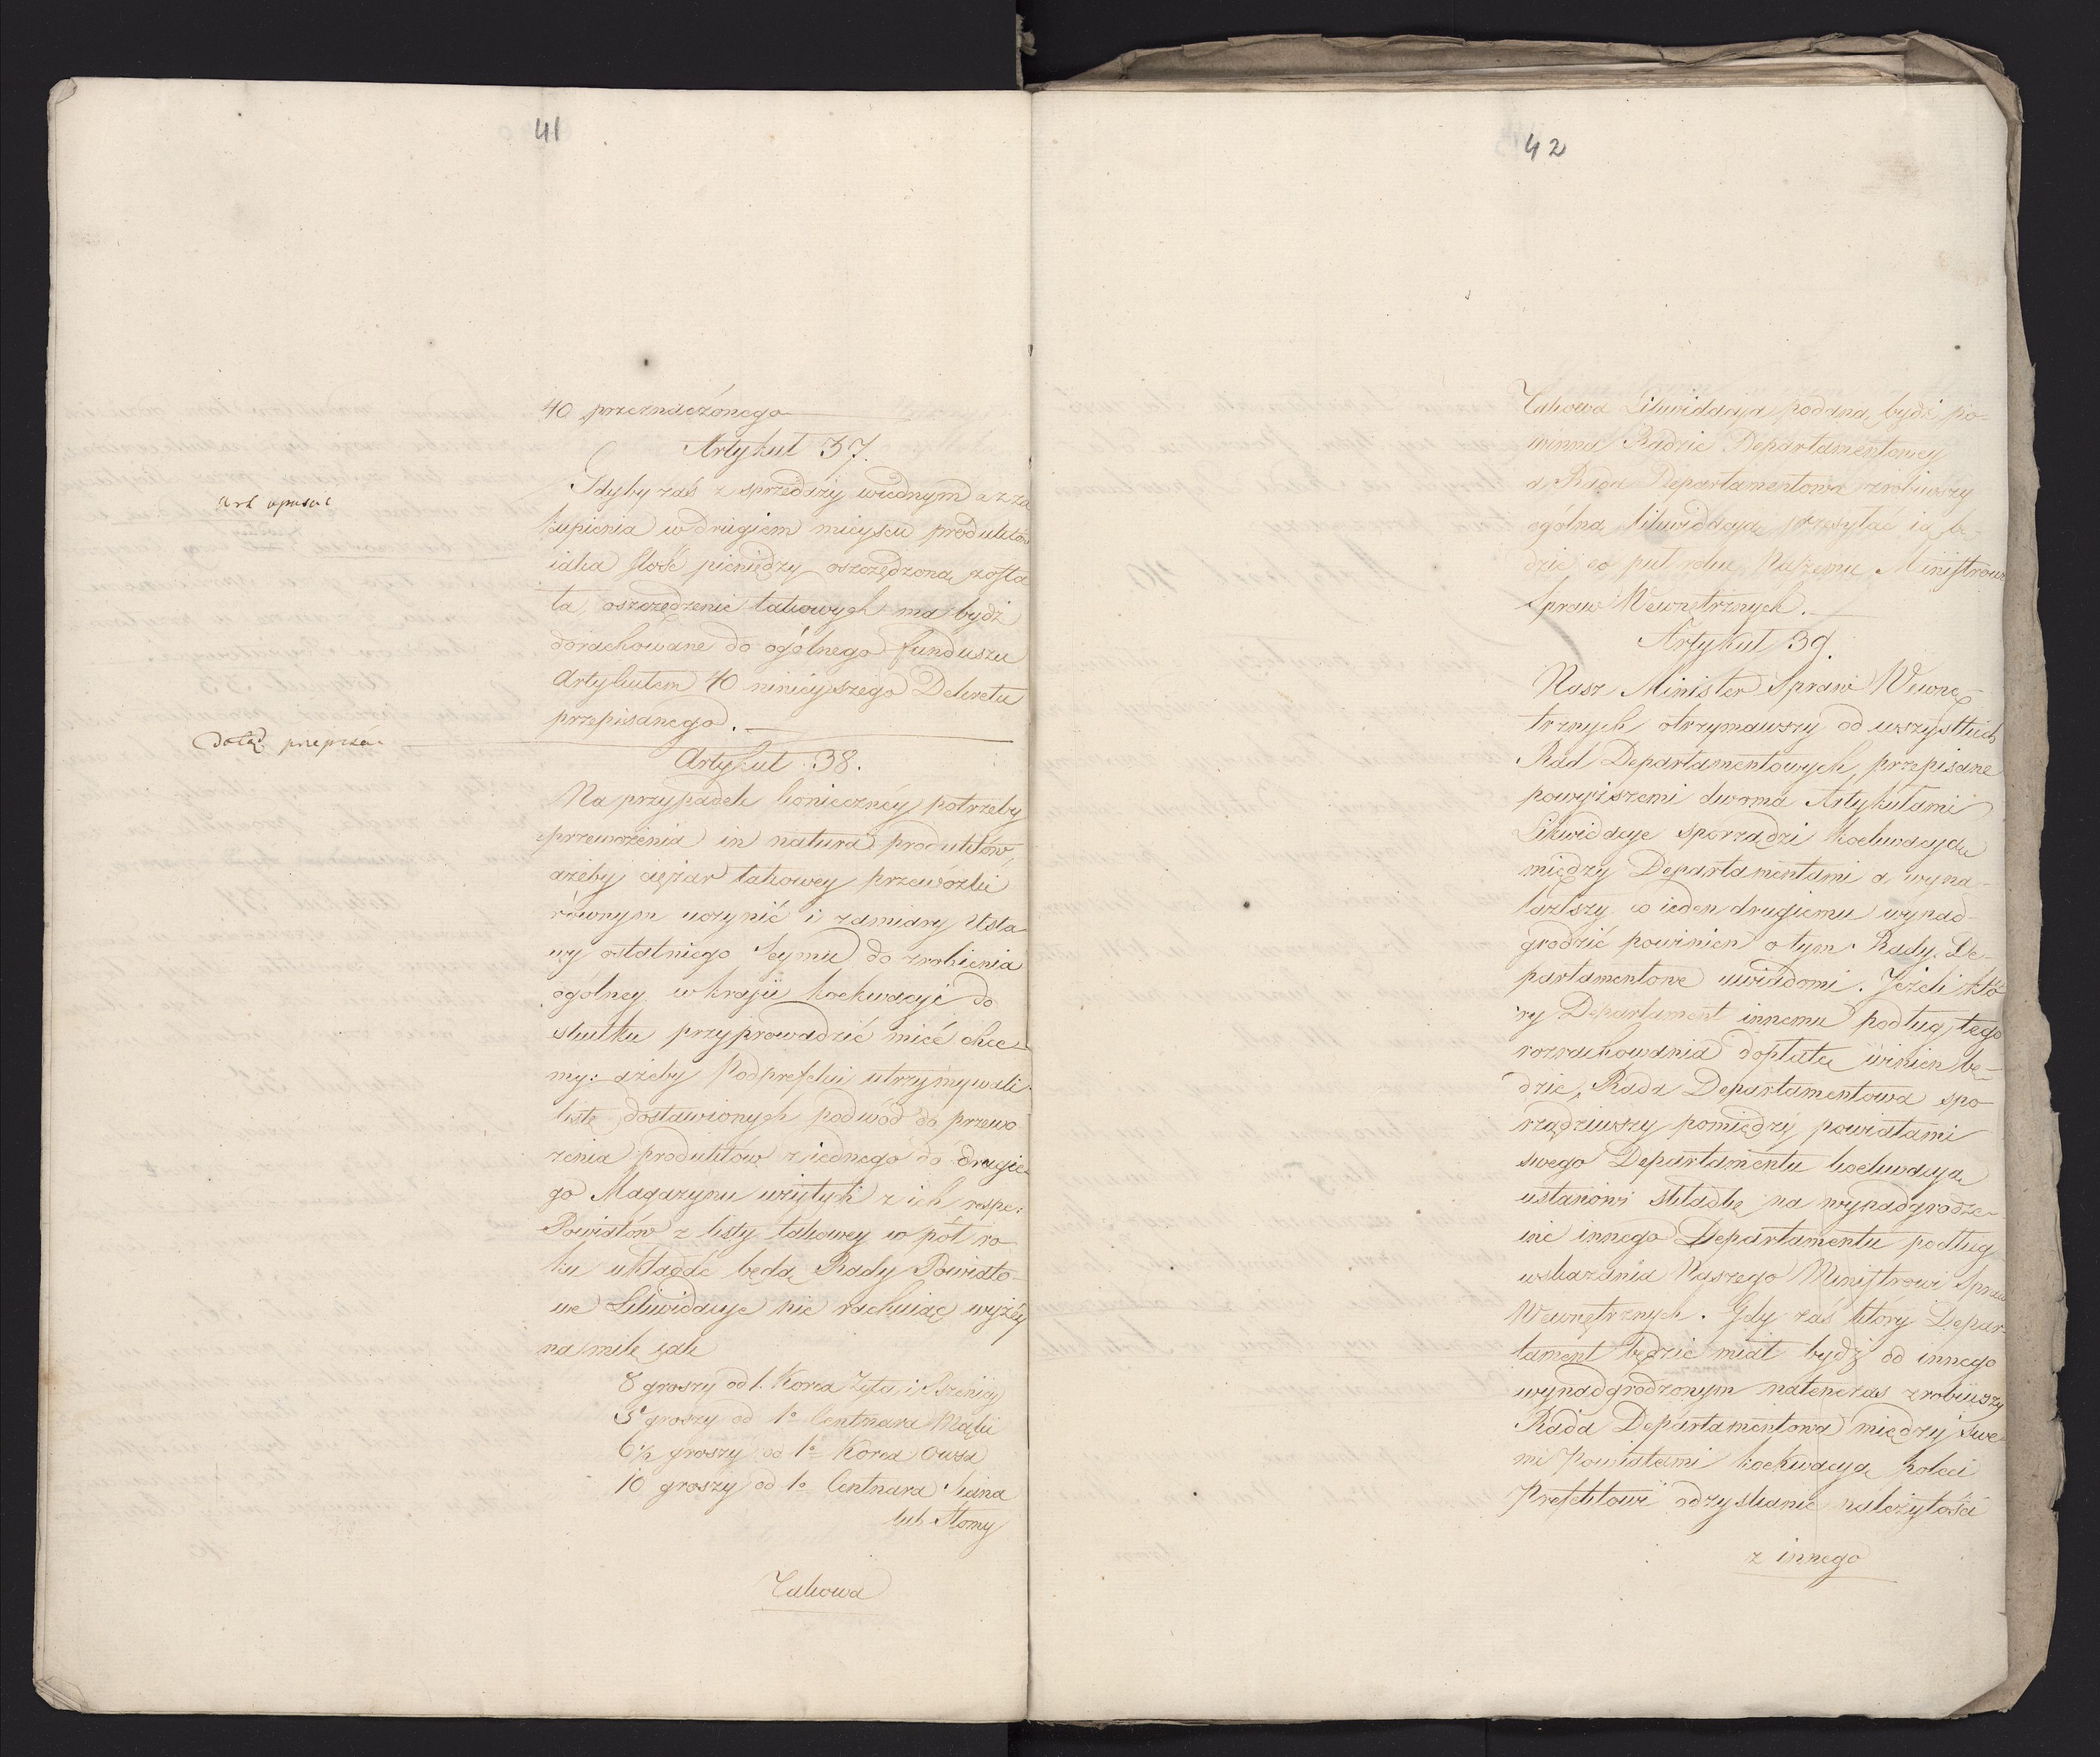 41
40 przeznaczónego
Artykuł 37.
Art opuscić
Gdyby zaś z sprzedaży wiednym a z za
kupienia w drugiem mieyscu produktów
iaka ilość pieniędzy oszczędzona zosta
ła, oszczędzenie takowych ma bydź
dorachowane do ogólnego funduszu
Artykułem 40 ninieyszego Dekretu
przepisanego.
dotąd przepisać
Artykuł 38.
Na przypadek konieczney potrzeby
przewożenia in natura produktów,
ażeby ciężar takowey przewózki
równym uczynić i zamiary Usta
wy ostatniego Seymu do zrobienia
ogólney w kraju koekwacyi do
skutku przyprowadzić mieć chce-
my: ażeby Podprefekci utrzymywali
listę dostawionych podwód do przewo
żenia produktów z iednego do drugie
go Magazynu użytych z ich respe:
Powiatów z listy takowey w pół ro
ku układać będą Rady Powiato-
we Likwidacye nie rachuiąc wyżéy
na milę iak
8 groszy od 1. Korca Żyta i Pszenicy
5 groszy od 1o Centnara Mąki
6½ groszy od 1o Korca Owsa
10 groszy od 1o Centnara Siana
lub Słomy
Takowa
42
Takowa Likwidacya podana bydź po-
winna Radzie Departamentowey
a Rada Departamentowa zrobiwszy
ogólną likwidacyą przesyłać ią bę-
dzie co puł roku Naszemu Ministrowi
Spraw Wewnętrznych.
Artykuł 39.
Nasz Minister Spraw Wewnę-
trznych otrzymawszy od wszystkich
Rad Departamentowych, przepisane
powyższemi dwoma Artykułami
Likwidacye sporządzi koekwacyą
między Departamentami a wyna-
lazłszy co ieden drugiemu wynad-
grodzić powinien o tym Rady De-
partamentowe uwiadomi. Jeżeli któ
ry Departament innemu podług tego
rozrachowania dopłatę winien bę-
dzie, Rada Departamentowa spo
rządziwszy pomiędzy powiatami
swego Departamentu koekwacyą
ustanowi składkę na wynadgrodze-
nie innego Departamentu podług
wskazania Naszego Ministrowi Spraw
Wewnętrznych. Gdy zaś który Depar-
tament będzie miał bydź od innego
wynadgrodzonym natenczas zrobiwszy
Rada Departamentowa między swe
mi Powiatami koekwacyą poleci
Prefektowi odzyskanie należytości
z innego